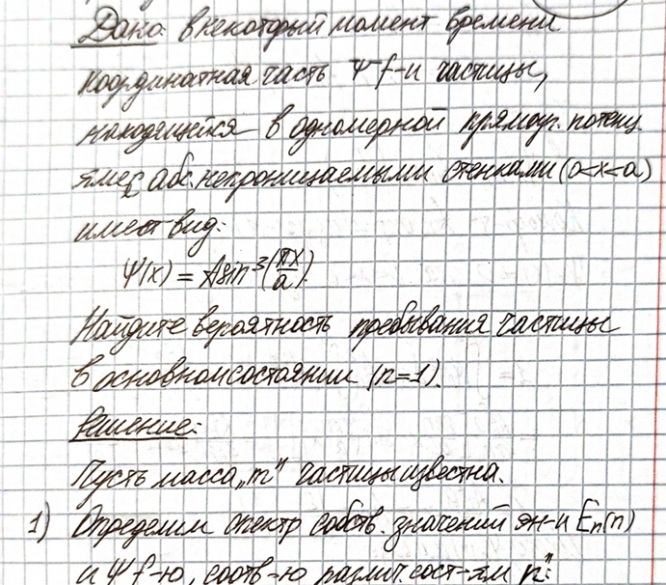 Дано: в некоторый момент времени
координатная часть Ψ f-и частицы,
находящейся в одномерной прямоуг. потенц.
яме с абс. непроницаемыми стенками (0<x<a)
имеет вид:
Ψ(x) = A sin³(πx/a).
Найдите вероятность пребывания частицы
в основном состоянии (n=1).
Решение:
Пусть масса „m" частицы известна.
1) Определим спектр собств. значений эн-и Eₙ(n)
и Ψ f-ю, соотв-ю различ. сост-ям n":